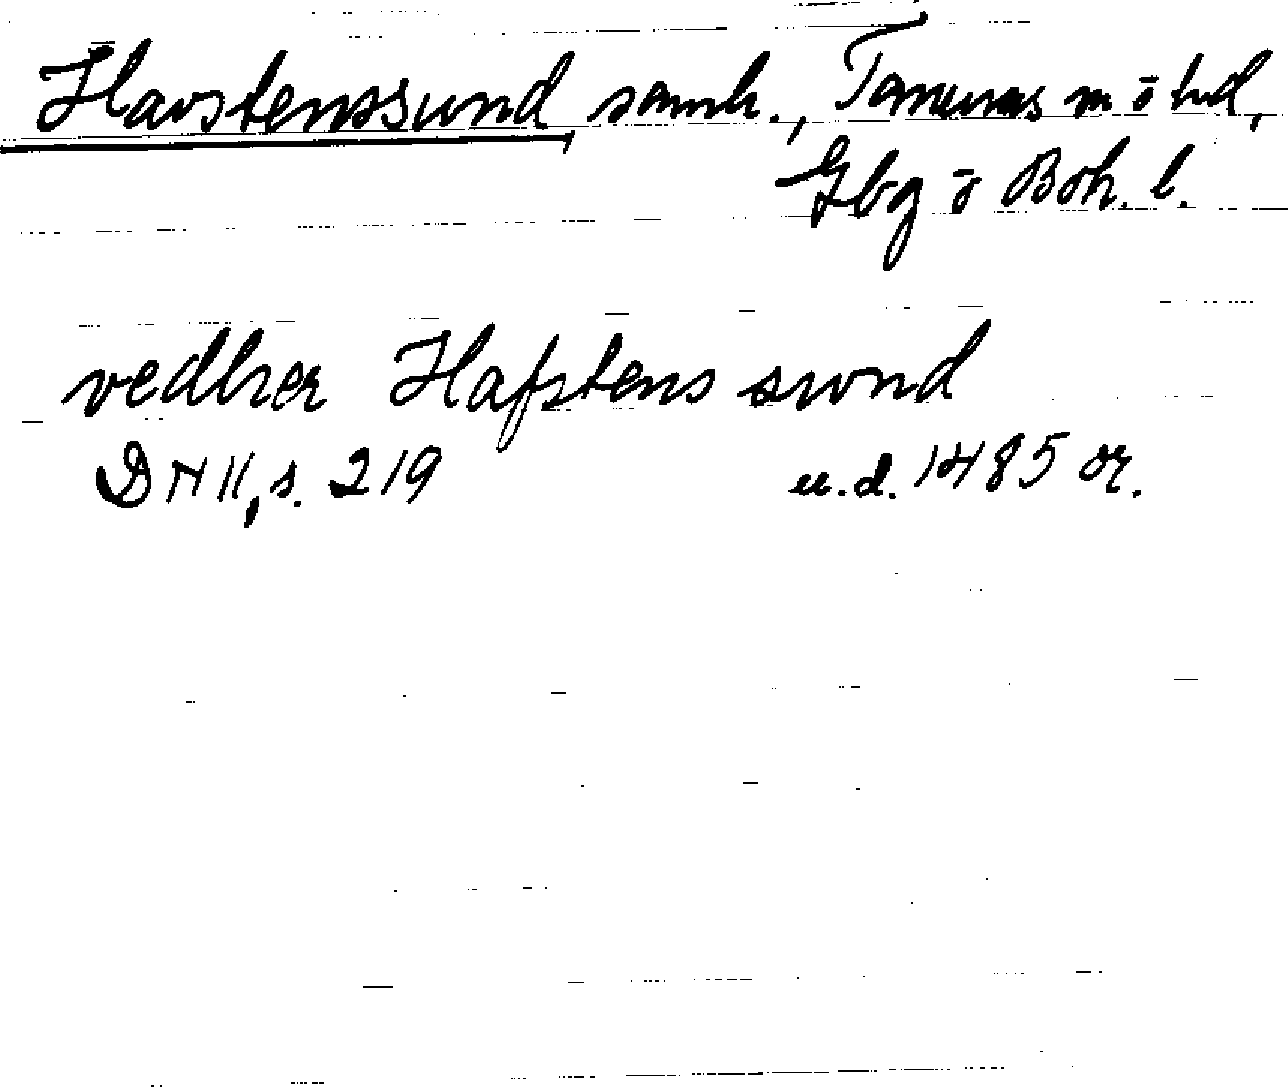 Havstenssund, samh., Tanums sn o hd,
Gbg o Boh. l.
vedher Hafstens swnd
DN II, s. 719
u.d. 1485 or.